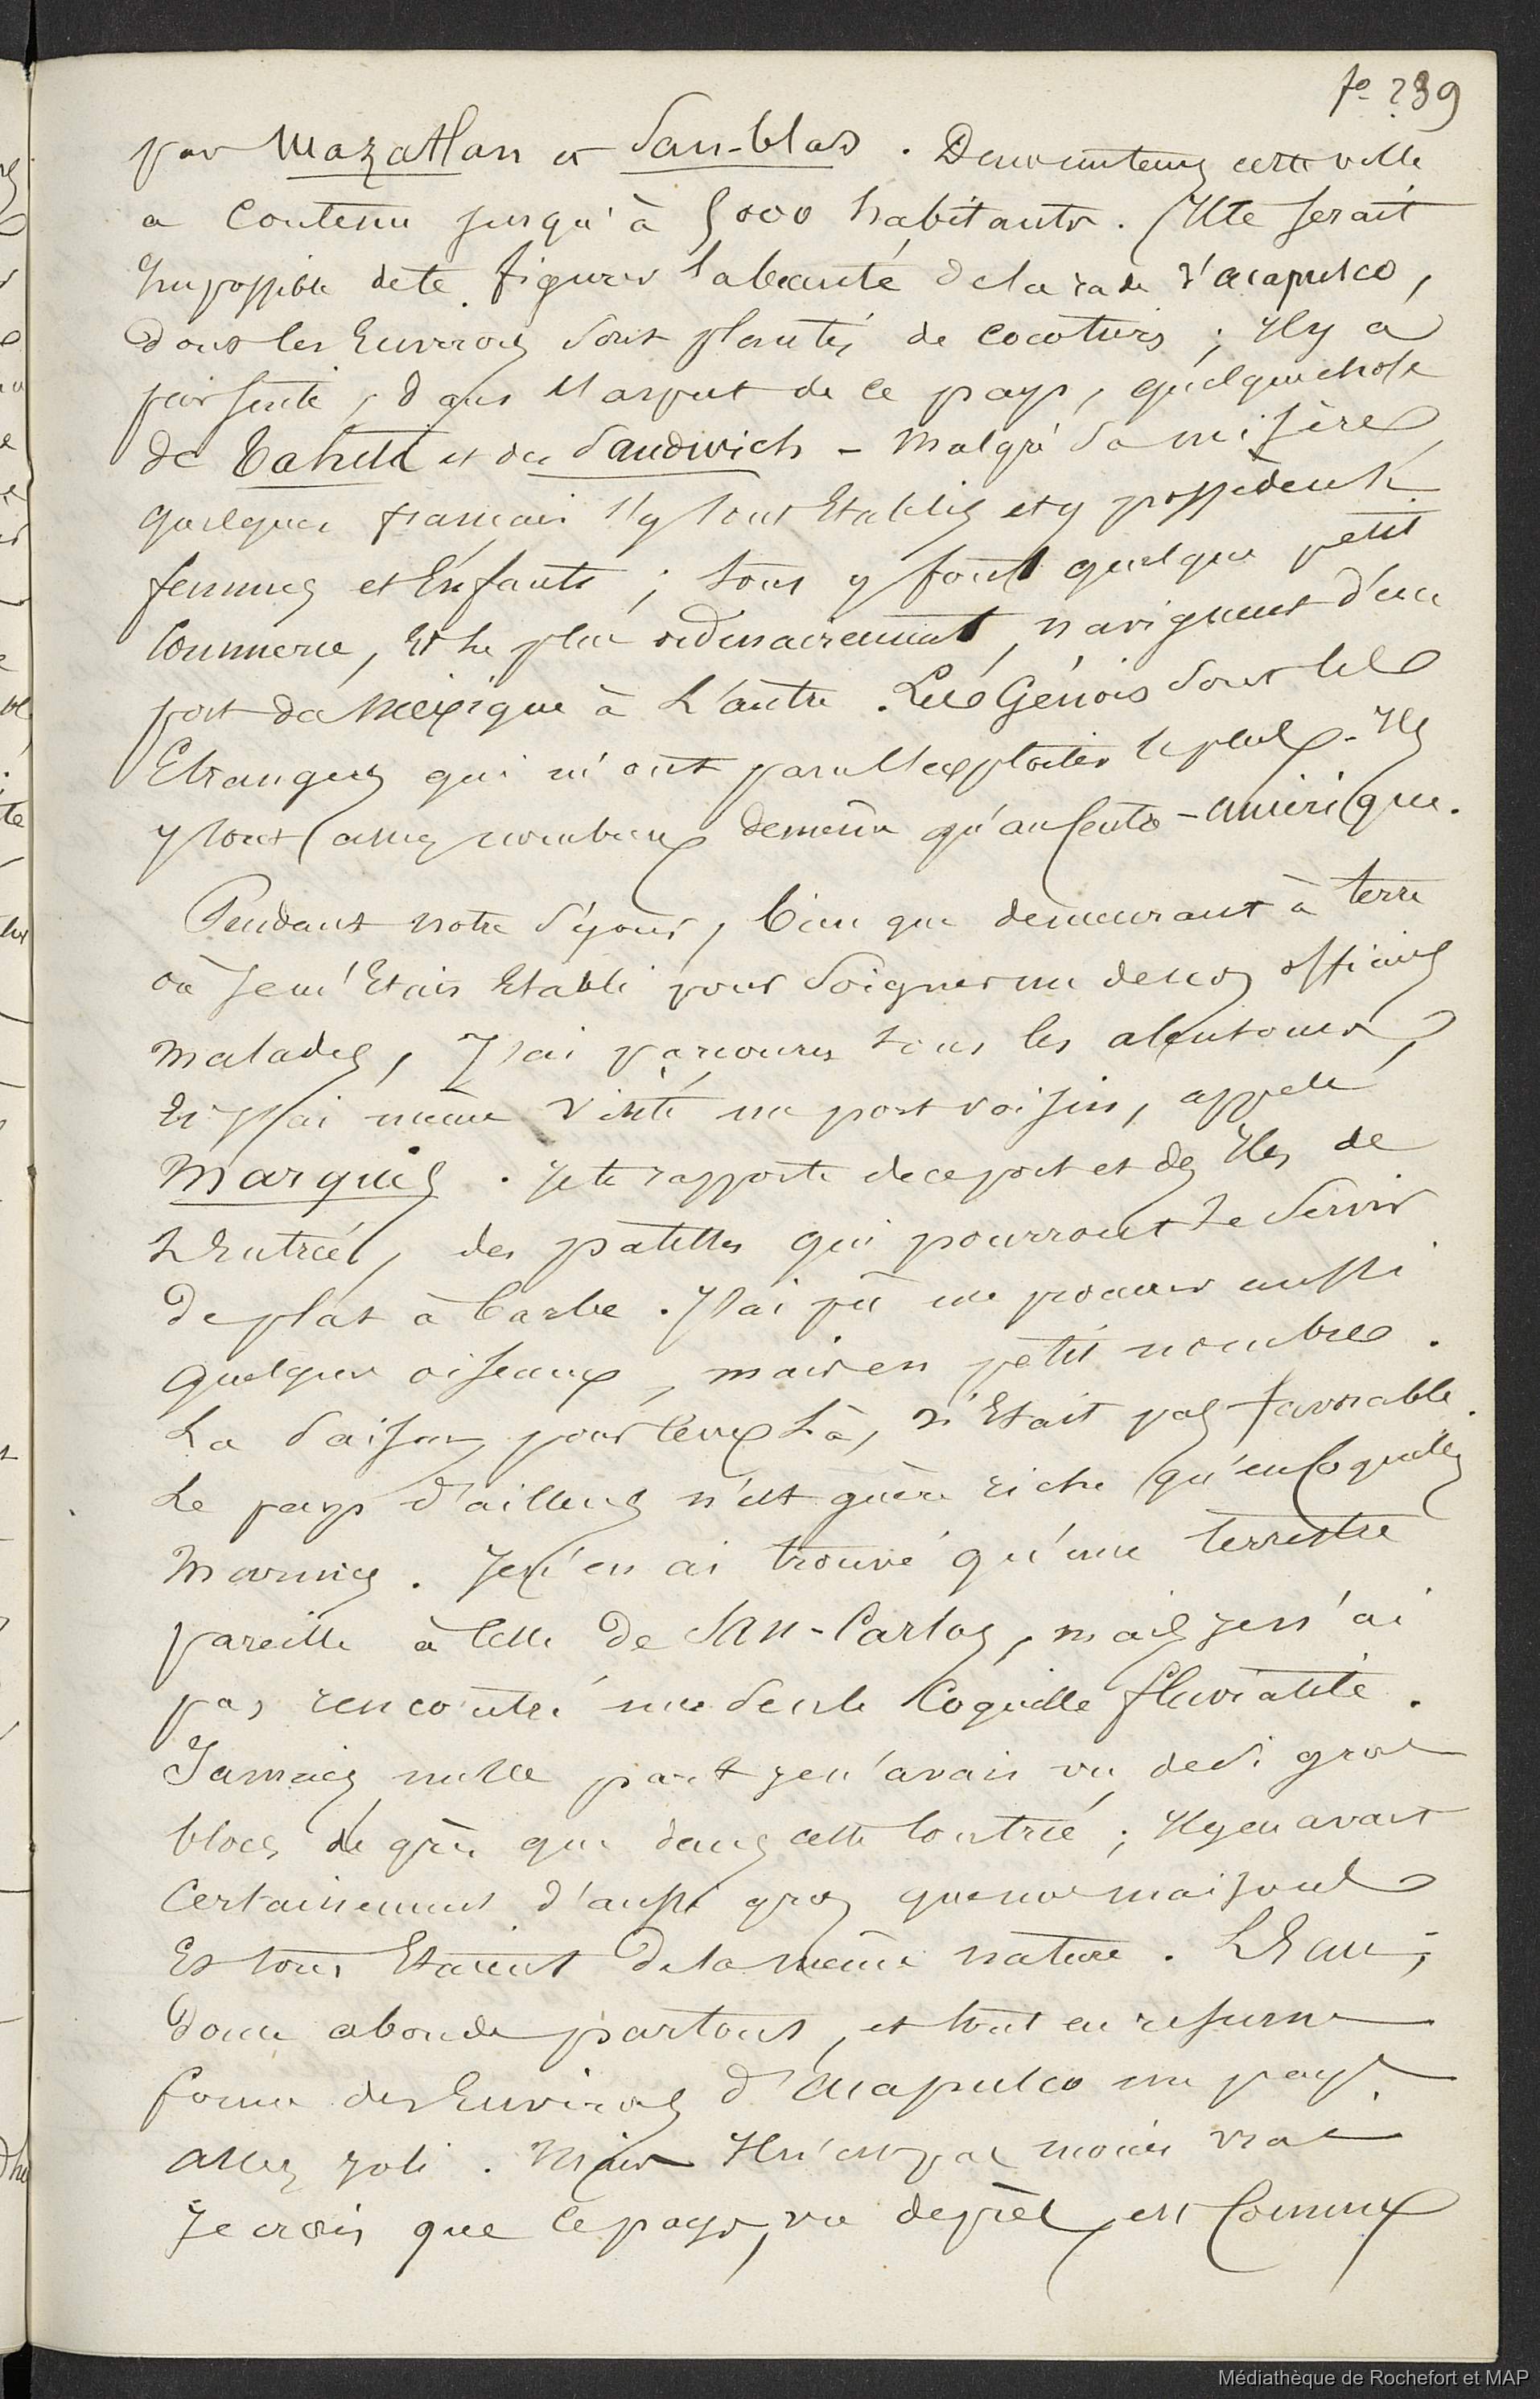 fo 239
par Mazatlan et San-blas. Deux cette ville
a contenu jusqu'à 5000 habitants. Il te serait
Impossible de te figurer la beauté de la rade d'acapulco,
dont les Environs sont plantés de cocotiers ; Il y a
dans l'aspect de ce pays, quelque chose
de Tahiti et des Sandwich - Malgré sa misère,
quelques français s'y sont Etablis et y possèdent
femmes et Enfants ; tous y font quelque petit
Commerce, Et le plus ordinairement, naviguent d'un
port du Mexique à L'autre. Les Génois sont les
Etrangers qui m'ont paru l'exploiter le plus. Ils
y sont assez nombreux de même qu'au Centre-amérique.
Pendant notre séjour, bien que demeurant à terre
où Je m'Etais Etabli pour Soigner un de nos officiers
malades, J'ai parcouru tous les alentours,
Et J'ai même visité un port voisin, appelé
Marquis. Je te rapporte de ce port et des Iles de
L'Entrée, des patelles qui pourront te Servir
De plat à barbe. J'ai pû me procurer aussi
quelques oiseaux, mais en petit nombre.
La Saison, pour Ceux Là, n'Etait pas favorable.
Le pays d'ailleurs n'est guère riche qu'en Coquilles
Marines. Je n'en ai trouvé qu'une terrestre
pareille à Celle De San-Carlos, mais je n'ai
pas rencontré une Seule Coquille fluviatile.
Jamais nulle part je n'avais vu de Si gros
blocs de grès que dans cette Contrée ; Il y en avait
Certainement d'aussi gros que nos maisons
Et tous Etaient De la même nature. L'Eau
Douce abonde partout, et tout en resume
forme des Environs d'Acapulco un pays
assez joli. Mais Il n'est pas moins vrai
Je crois que ce pays, vu de près, est Comme
Médiathèque de Rochefort et MAP